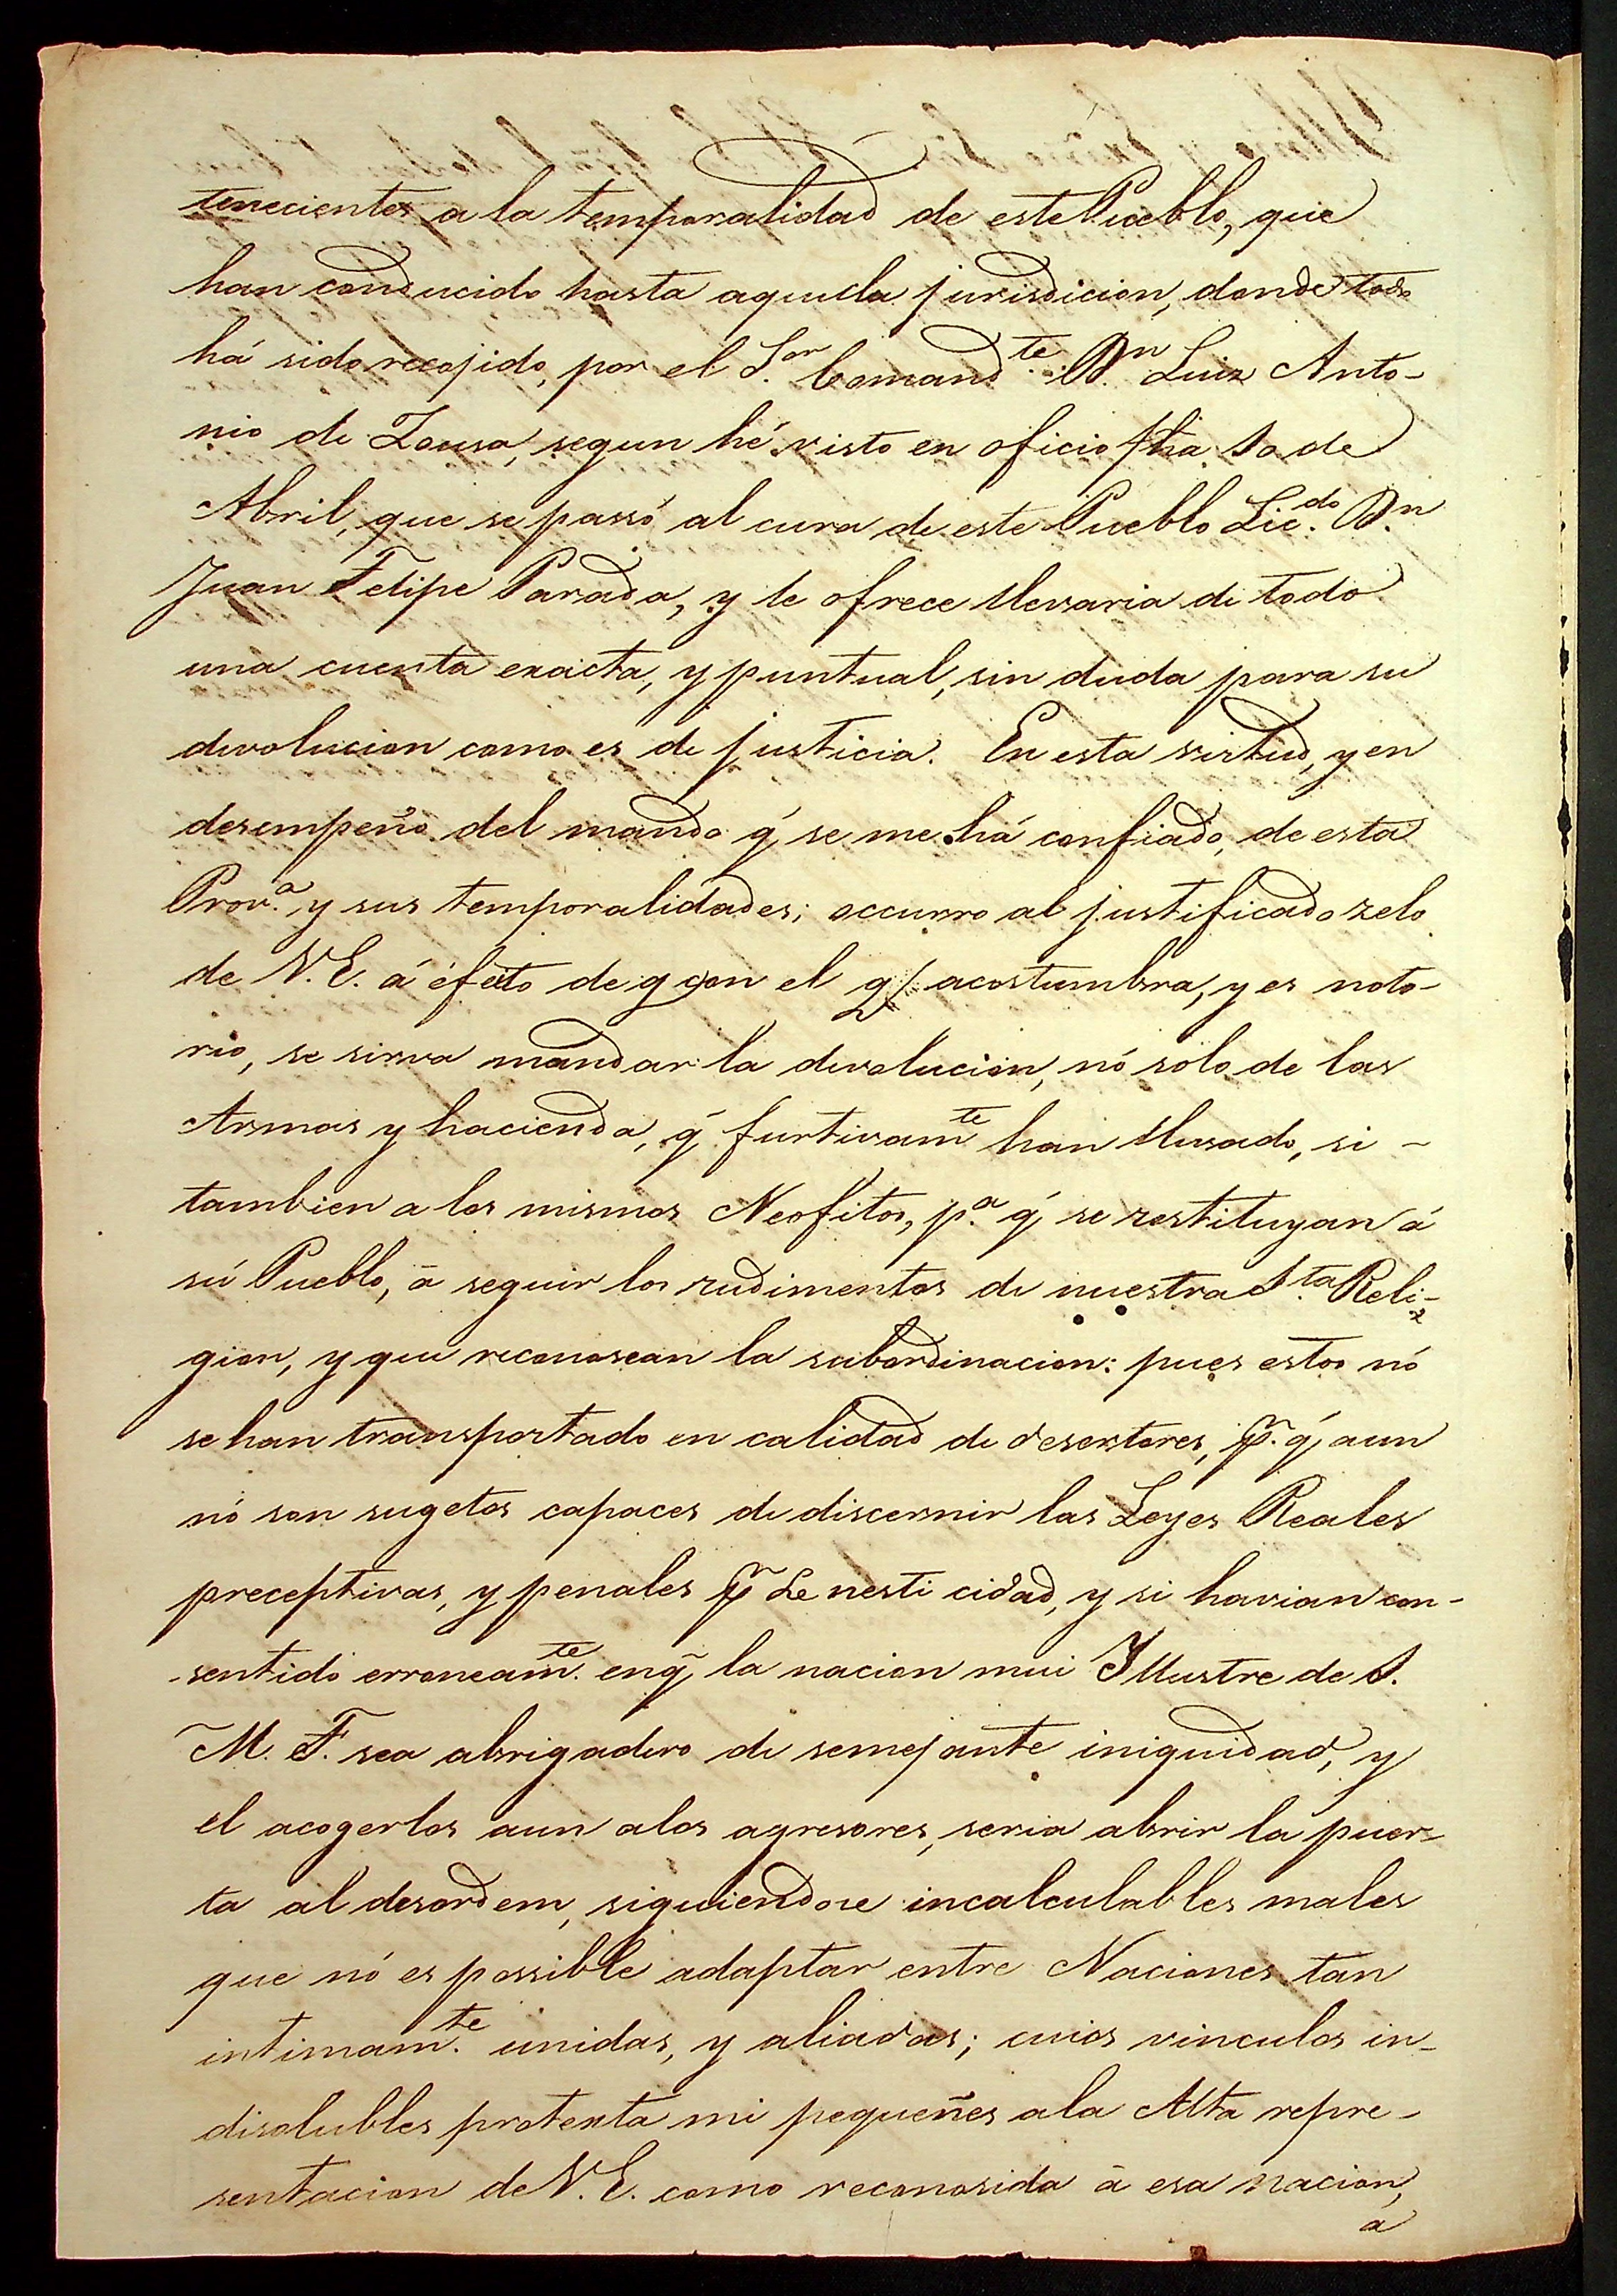 tenecientes a la temporalidad de este Pueblo, que
han conducido hasta aquella jurisdicion, donde todo
há sido recojido, por el S.or Comand.te D.n Luiz Anto-
nio de Zousa, segun hé visto en oficio fha 10 de
Abril, que se passó al cura de este Pueblo Lic.do D.n
Juan Felipe Parada, y le ofrece llevaria de todo
una cuenta exacta, y puntual, sin duda para su
devolucion como es de justicia. En esta virtud, y en
desempeño del mando q́ se me há confiado, de esta
Prov.a y sus temporalidades; occurro al justificado zelo
de V. E. á éfecto de q con el q acostumbra, y es noto-
rio, se sirva mandar la devolucion, nó solo de las
Armas y hacienda, q̃ furtivam.te han llevado, si -
tambien a los mismos Neofitos, p.a q́ se restituyan á
sú Pueblo, ā seguir los rudimentos de nuestra S.ta Reli-
gion, y que reconoscan la subordinacion: pues estos nó
se han transportado en calidad de desertores, p. q́ aun
nó son sugetos capaces de discernir las Leyes Reales
preceptivas, y penales p̃ Le nesti cidad, y si havian con-
-sentido erroneam.te en q̃ la nacion mui Illustre de S.
M. F. sea abrigadero de semejante iniquidad, y
el acogerlos aun a los agresores, seria abrir la puer-
ta al desordem, siguiendose incalculables males
que nó es possible adaptar entre Naciones tan
intimam.te unidas, y aliadas; cuios vinculos in-
disolubles protexta mi pequeñes a la Alta repre-
sentacion de V. E. como reconosida ā esa nacion,
a